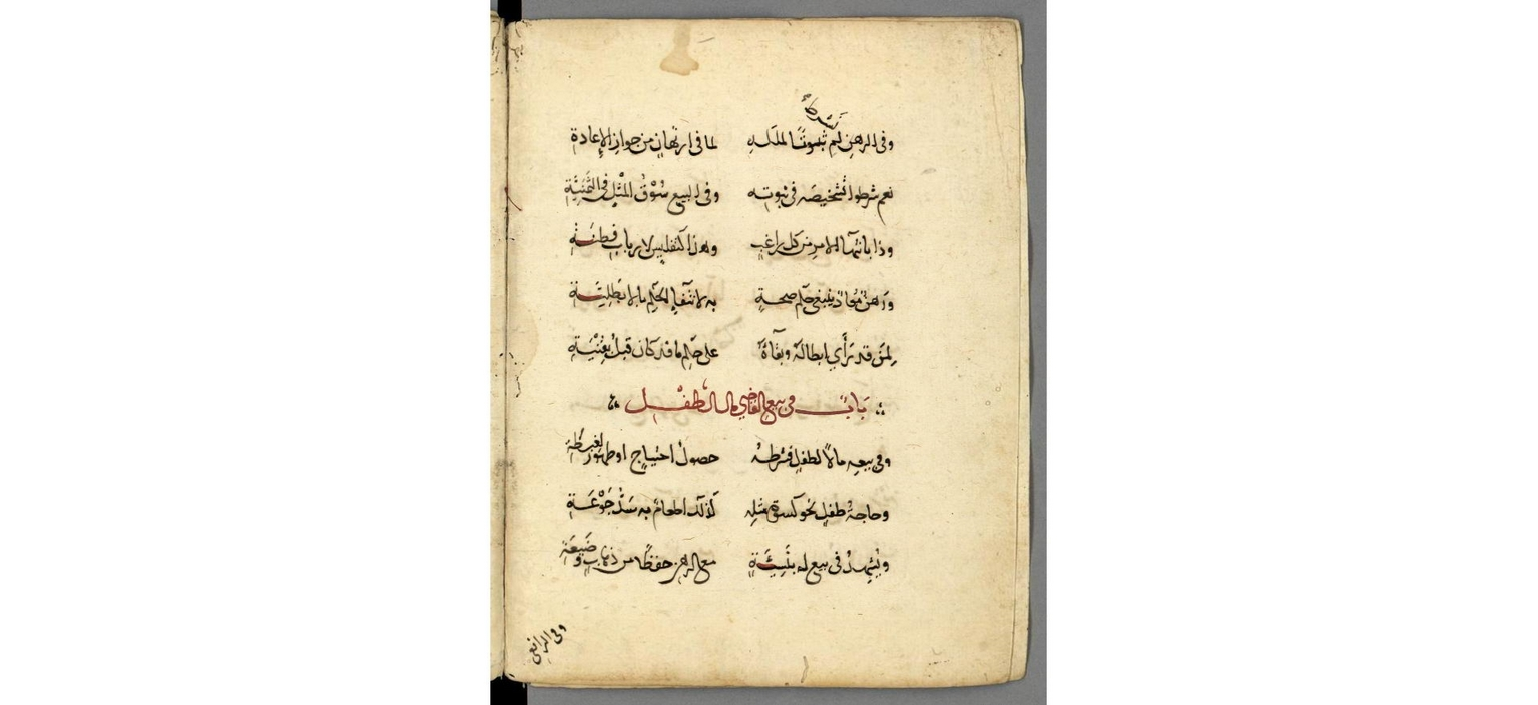 وفي الرهن لم لملكه لما في ارتهان من جواز الإعادة
نعم شرطوا تشخيصه في ثبوته وفي البيع سُوْقُ المثل في الثَّمَنِيَّةِ
وذا بانتهآ الامر من كل راغبٍ وهذا كتفليس لارباب فطنةٍ
ورهن ينبغي صحةٍ به لا
لمن قد رَأَى ابطاله وبقاءُهُ على ما قد كان قبل
بابٌ في بيع القاضي مال الطفل
وفي بيعه مالاً لطفل فشرطهُ حصولُ احتياج او ظهور لغبطة
وحاجةُ طفلٍ نحو كسوة مثله كذلك اطعامٌ به سَدُّ جَوْعَةٍ
ويُشهدُ في بيع له بنَسِيئَةٍ مع الرهن حفظًا من ذهاب وضَيعَةٍ
وفي الرافعي